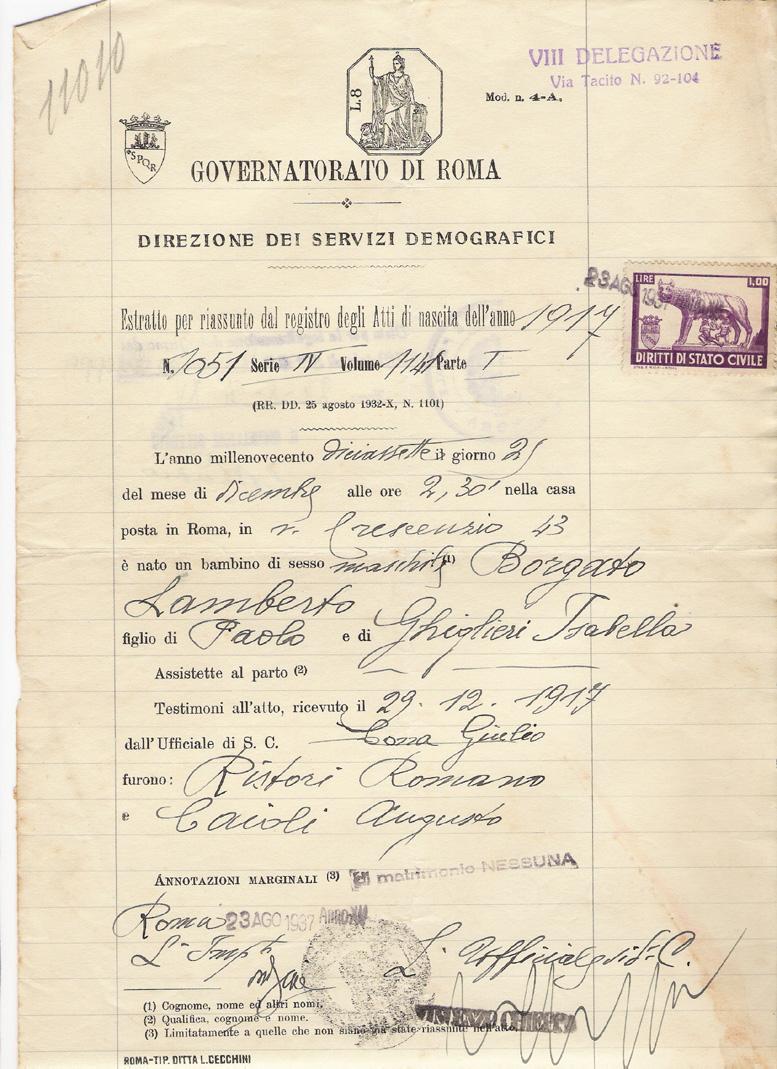 11010
VIII DELEGAZIONE
Via Tacito N. 92-104
L. 8
Mod. n. 4-A.
SPQR
GOVERNATORATO DI ROMA
DIREZIONE DEI SERVIZI DEMOGRAFICI
23 AGO 1937
LIRE 1,00
DIRITTI DI STATO CIVILE
Estratto per riassunto dal registro degli Atti di nascita dell'anno 1917
N. 1051 Serie IV Volume 1141 Parte I
(RR. DD. 25 agosto 1932-X, N. 1101)
L'anno millenovecento diciassette il giorno 25
del mese di dicembre alle ore 2,30' nella casa
posta in Roma, in v. Crescenzio 43
è nato un bambino di sesso maschile (1) Borgato
Lamberto
figlio di Paolo e di Ghiglieri Isabella
Assistette al parto (2) — —
Testimoni all'atto, ricevuto il 29. 12. 1917
dall'Ufficiale di S. C. Cona Giulio
furono: Ristori Romano
e Caioli Augusto
ANNOTAZIONI MARGINALI (3) di matrimonio NESSUNA
Roma 23 AGO 1937 Anno XV
L' Imp. L' Ufficiale di S. C.
(1) Cognome, nome ed altri nomi.
(2) Qualifica, cognome e nome.
(3) Limitatamente a quelle che non siano già state riassunte nell'atto.
ROMA-TIP. DITTA L. CECCHINI